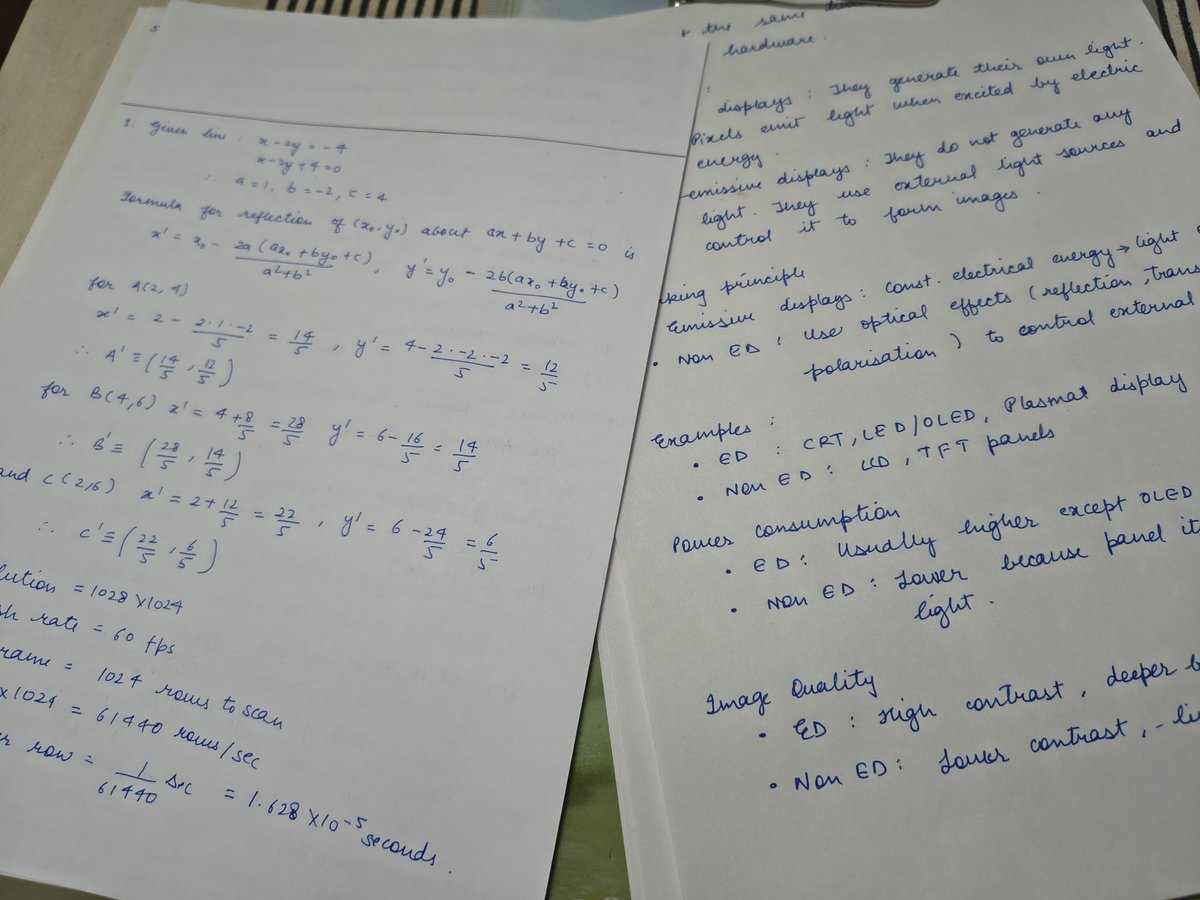 5
2. Given line : x - 2y = -4
x - 2y + 4 = 0
∴ a = 1, b = -2, c = 4
Formula for reflection of (x₀, y₀) about ax + by + c = 0 is
x' = x₀ - 2a(ax₀ + by₀ + c)/(a² + b²), y' = y₀ - 2b(ax₀ + by₀ + c)/(a² + b²)
for A(2, 4)
x' = 2 - 2·1·-2/5 = 14/5, y' = 4 - 2·-2·-2/5 = 12/5
∴ A' ≡ (14/5, 12/5)
for B(4,6) x' = 4 + 8/5 = 28/5 y' = 6 - 16/5 = 14/5
∴ B' ≡ (28/5, 14/5)
and C(2,6) x' = 2 + 12/5 = 22/5, y' = 6 - 24/5 = 6/5
∴ C' ≡ (22/5, 6/5)
lution = 1028 × 1024
sh rate = 60 fps
rame = 1024 rows to scan
× 1024 = 61440 rows/sec
er row = 1/61440 sec = 1.628 × 10⁻⁵ seconds.
the same
hardware.
: displays : They generate their own light.
Pixels emit light when excited by electric
energy.
emissive displays : They do not generate any
light. They use external light sources and
control it to form images.
king principle
Emissive displays : Const. electrical energy → light
• Non ED : Use optical effects (reflection, trans
polarisation) to control external
Examples :
• ED : CRT, LED/OLED, Plasma display
• Non ED : LCD, TFT panels
Power consumption
• ED : Usually higher except OLED
• Non ED : Lower because panel it
light.
Image Quality
• ED : High contrast, deeper b
• Non ED : Lower contrast, - li